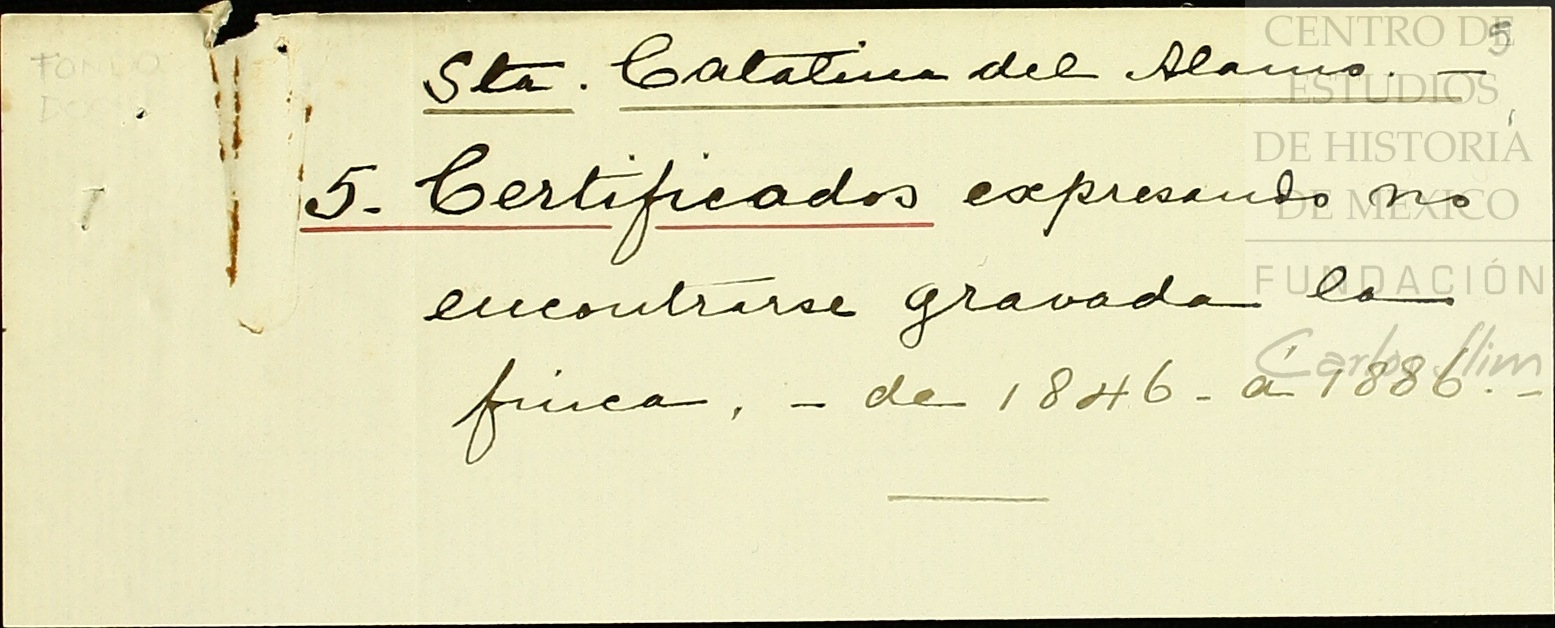 Sta. Catalina del Alamo. —
5
5. Certificados expresando no
encontrarse gravada la
finca. — de 1846 - á 1886. —
FONDO
CENTRO DE
ESTUDIOS
DE HISTORIA
DE MÉXICO
FUNDACIÓN
Carlos Slim